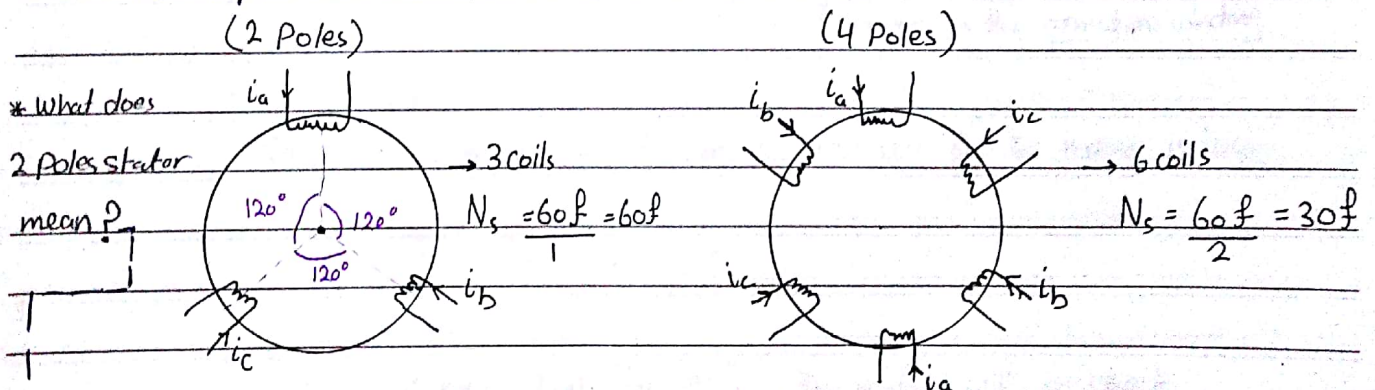 (2 Poles) (4 Poles)
* What does
2 Poles stator
mean?
ia
120° 120°
120°
ib
ic
→ 3 coils
Ns = 60f/1 = 60f
ib ia ic
ic ib
ia
→ 6 coils
Ns = 60f/2 = 30f